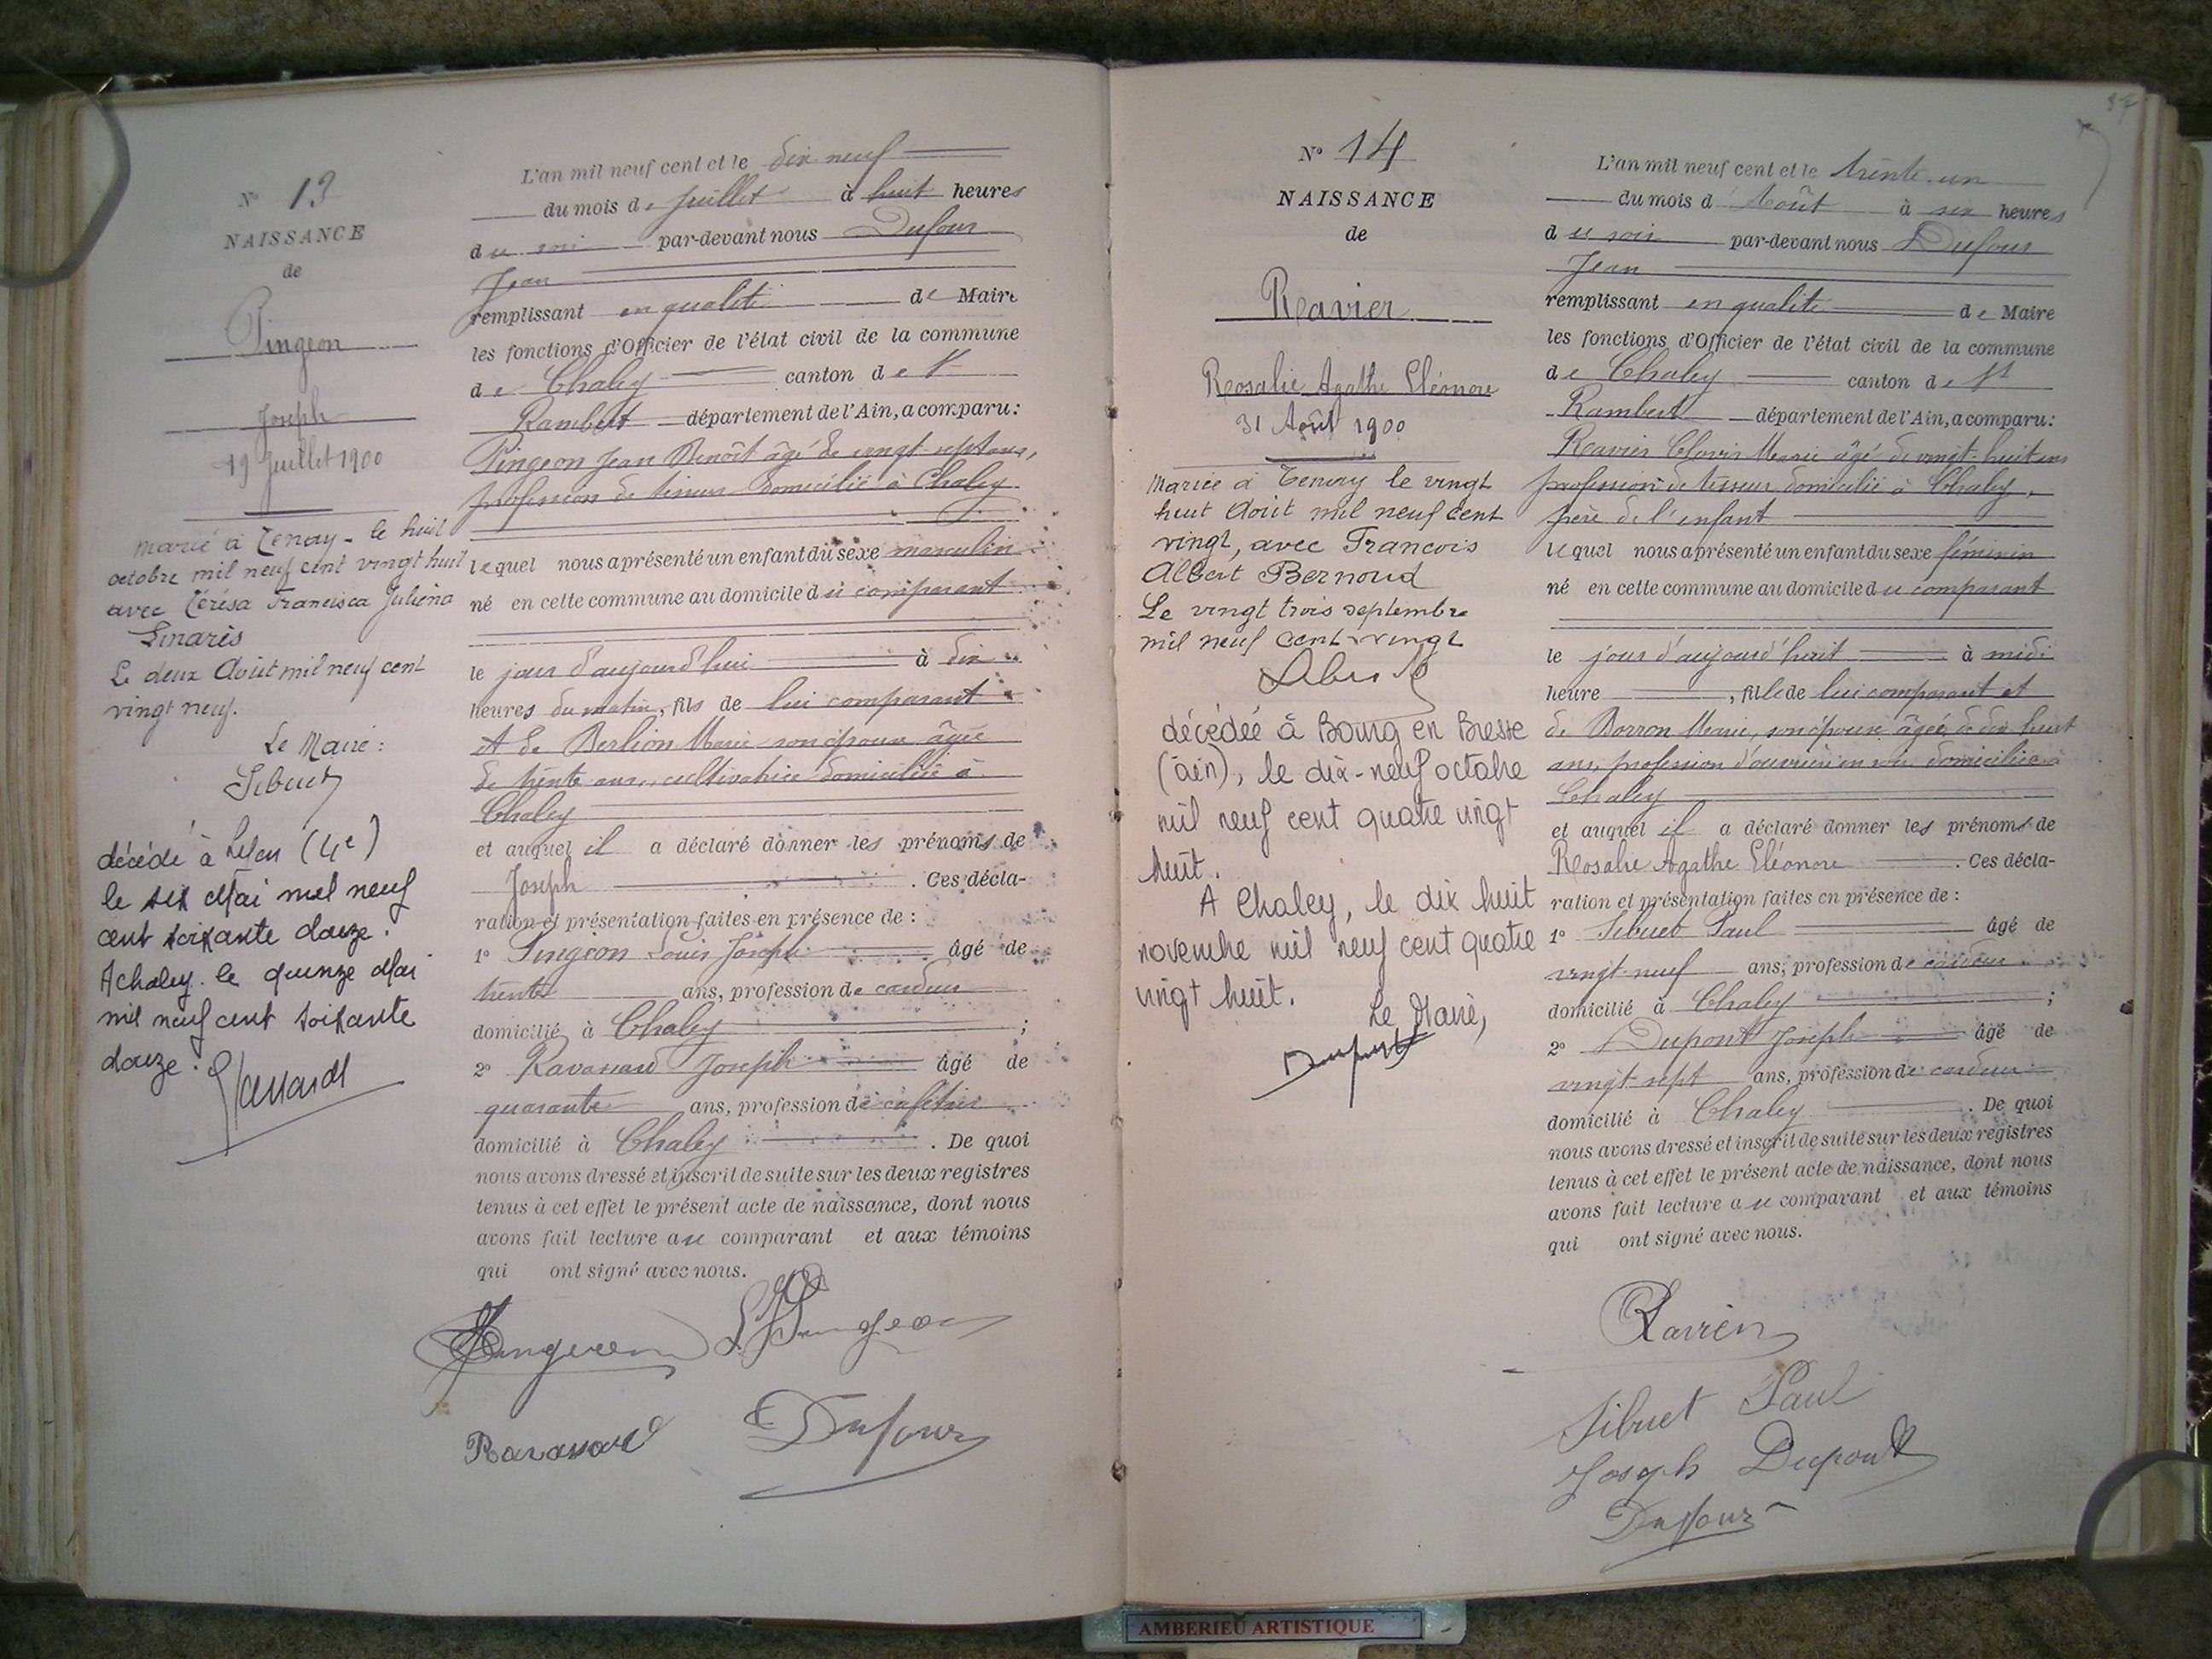 N° 13
NAISSANCE
de
Pingeon
Joseph
19 Juillet 1900
Marié à Tenay - le huit
octobre mil neuf cent vingt huit
avec Térésa Francisca Juliena
Linarès
Le deux Août mil neuf cent
vingt neuf.
Le Maire :
Sibuet
décédé à Lyon (4e)
le six Mai mil neuf
cent soixante douze.
A chaley. le quinze Mai
mil neuf cent soixante
douze.
L'an mil neuf cent et le dix neuf
du mois de Juillet à huit heures
du soir par-devant nous Dufour
Jean
remplissant en qualité de Maire
les fonctions d'Officier de l'état civil de la commune
de Chaley canton de St
Rambert département de l'Ain, a comparu :
Pingeon Jean Benoît âgé de vingt sept ans,
profession de tisseur domicilié à Chaley
lequel nous a présenté un enfant du sexe masculin
né en cette commune au domicile du comparant
le jour d'aujourd'hui à dix
heures du matin, fils de lui comparant
et de Berlion Marie son épouse âgée
de trente ans, cultivatrice domiciliée à
Chaley
et auquel il a déclaré donner les prénoms de
Joseph . Ces décla-
ration et présentation faites en présence de :
1° Pingeon Louis Joseph âgé de
trente ans, profession de cardeur
domicilié à Chaley ;
2° Ravanard Joseph âgé de
quarante ans, profession de cafetier
domicilié à Chaley . De quoi
nous avons dressé et inscrit de suite sur les deux registres
tenus à cet effet le présent acte de naissance, dont nous
avons fait lecture au comparant et aux témoins
qui ont signé avec nous.
Pingeon L Pingeon
Ravanard Dufour
N° 14
NAISSANCE
de
Ravier
Rosalie Agathe Eléonore
31 Août 1900
Mariée à Tenay le vingt
huit Août mil neuf cent
vingt, avec Francois
Albert Bernoud
Le vingt trois septembre
mil neuf cent vingt
décédée à Bourg en Bresse
(ain), le dix-neuf octobre
mil neuf cent quatre vingt
huit.
A Chaley, le dix huit
novembre mil neuf cent quatre
vingt huit.
Le Maire,
Dupont
L'an mil neuf cent et le trente un
du mois d'Août à six heures
du soir par-devant nous Dufour
Jean
remplissant en qualité de Maire
les fonctions d'Officier de l'état civil de la commune
de Chaley canton de St
Rambert département de l'Ain, a comparu :
Ravier Clovis Marie âgé de vingt-huit ans
profession de tisseur domicilié à Chaley,
père de l'enfant
lequel nous a présenté un enfant du sexe féminin
né en cette commune au domicile du comparant
le jour d'aujourd'huit à midi
heure , fille de lui comparant et
de Borron Marie, son épouse âgée de dix huit
ans, profession d'ouvrière en soie domiciliée à
Chaley
et auquel il a déclaré donner les prénoms de
Rosalie Agathe Eléonore . Ces décla-
ration et présentation faites en présence de :
1° Sibuet Paul âgé de
vingt neuf ans, profession de cardeur
domicilié à Chaley ;
2° Dupont Joseph âgé de
vingt-sept ans, profession de cardeur
domicilié à Chaley . De quoi
nous avons dressé et inscrit de suite sur les deux registres
tenus à cet effet le présent acte de naissance, dont nous
avons fait lecture au comparant et aux témoins
qui ont signé avec nous.
Ravier
Sibuet Paul
Joseph Dupont
Dufour
AMBERIEU ARTISTIQUE